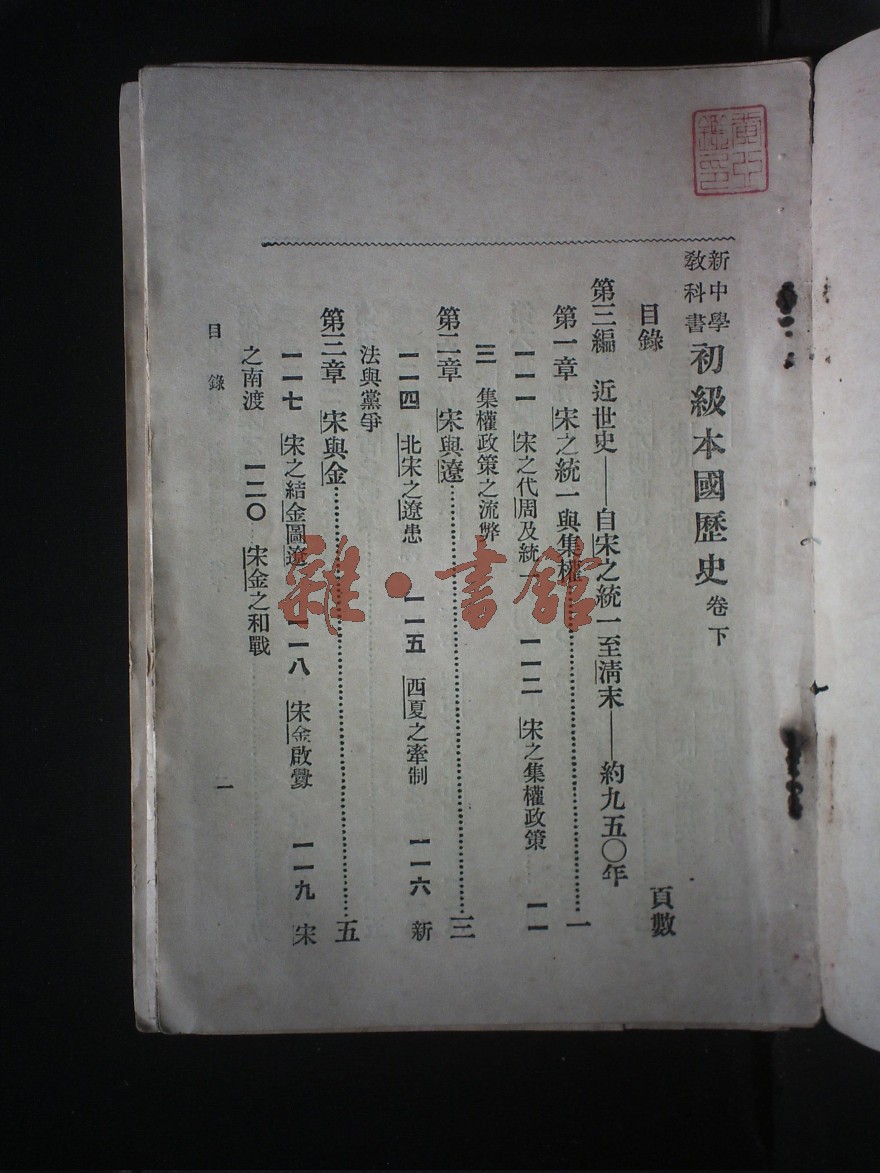 新中學教科書 初級本國歷史 卷下
目錄 頁數
第三編 近世史——自宋之統一至清末——約九五〇年
第一章 宋之統一與集權……一
一一一 宋之代周及統一 一一二 宋之集權政策 一一
三 集權政策之流弊
第二章 宋與遼……三
一一四 北宋之遼患 一一五 西夏之牽制 一一六 新
法與黨爭
第三章 宋與金……五
一一七 宋之結金圖遼 一一八 宋金啟釁 一一九 宋
之南渡 一二〇 宋金之和戰
目錄 一
雜·書館